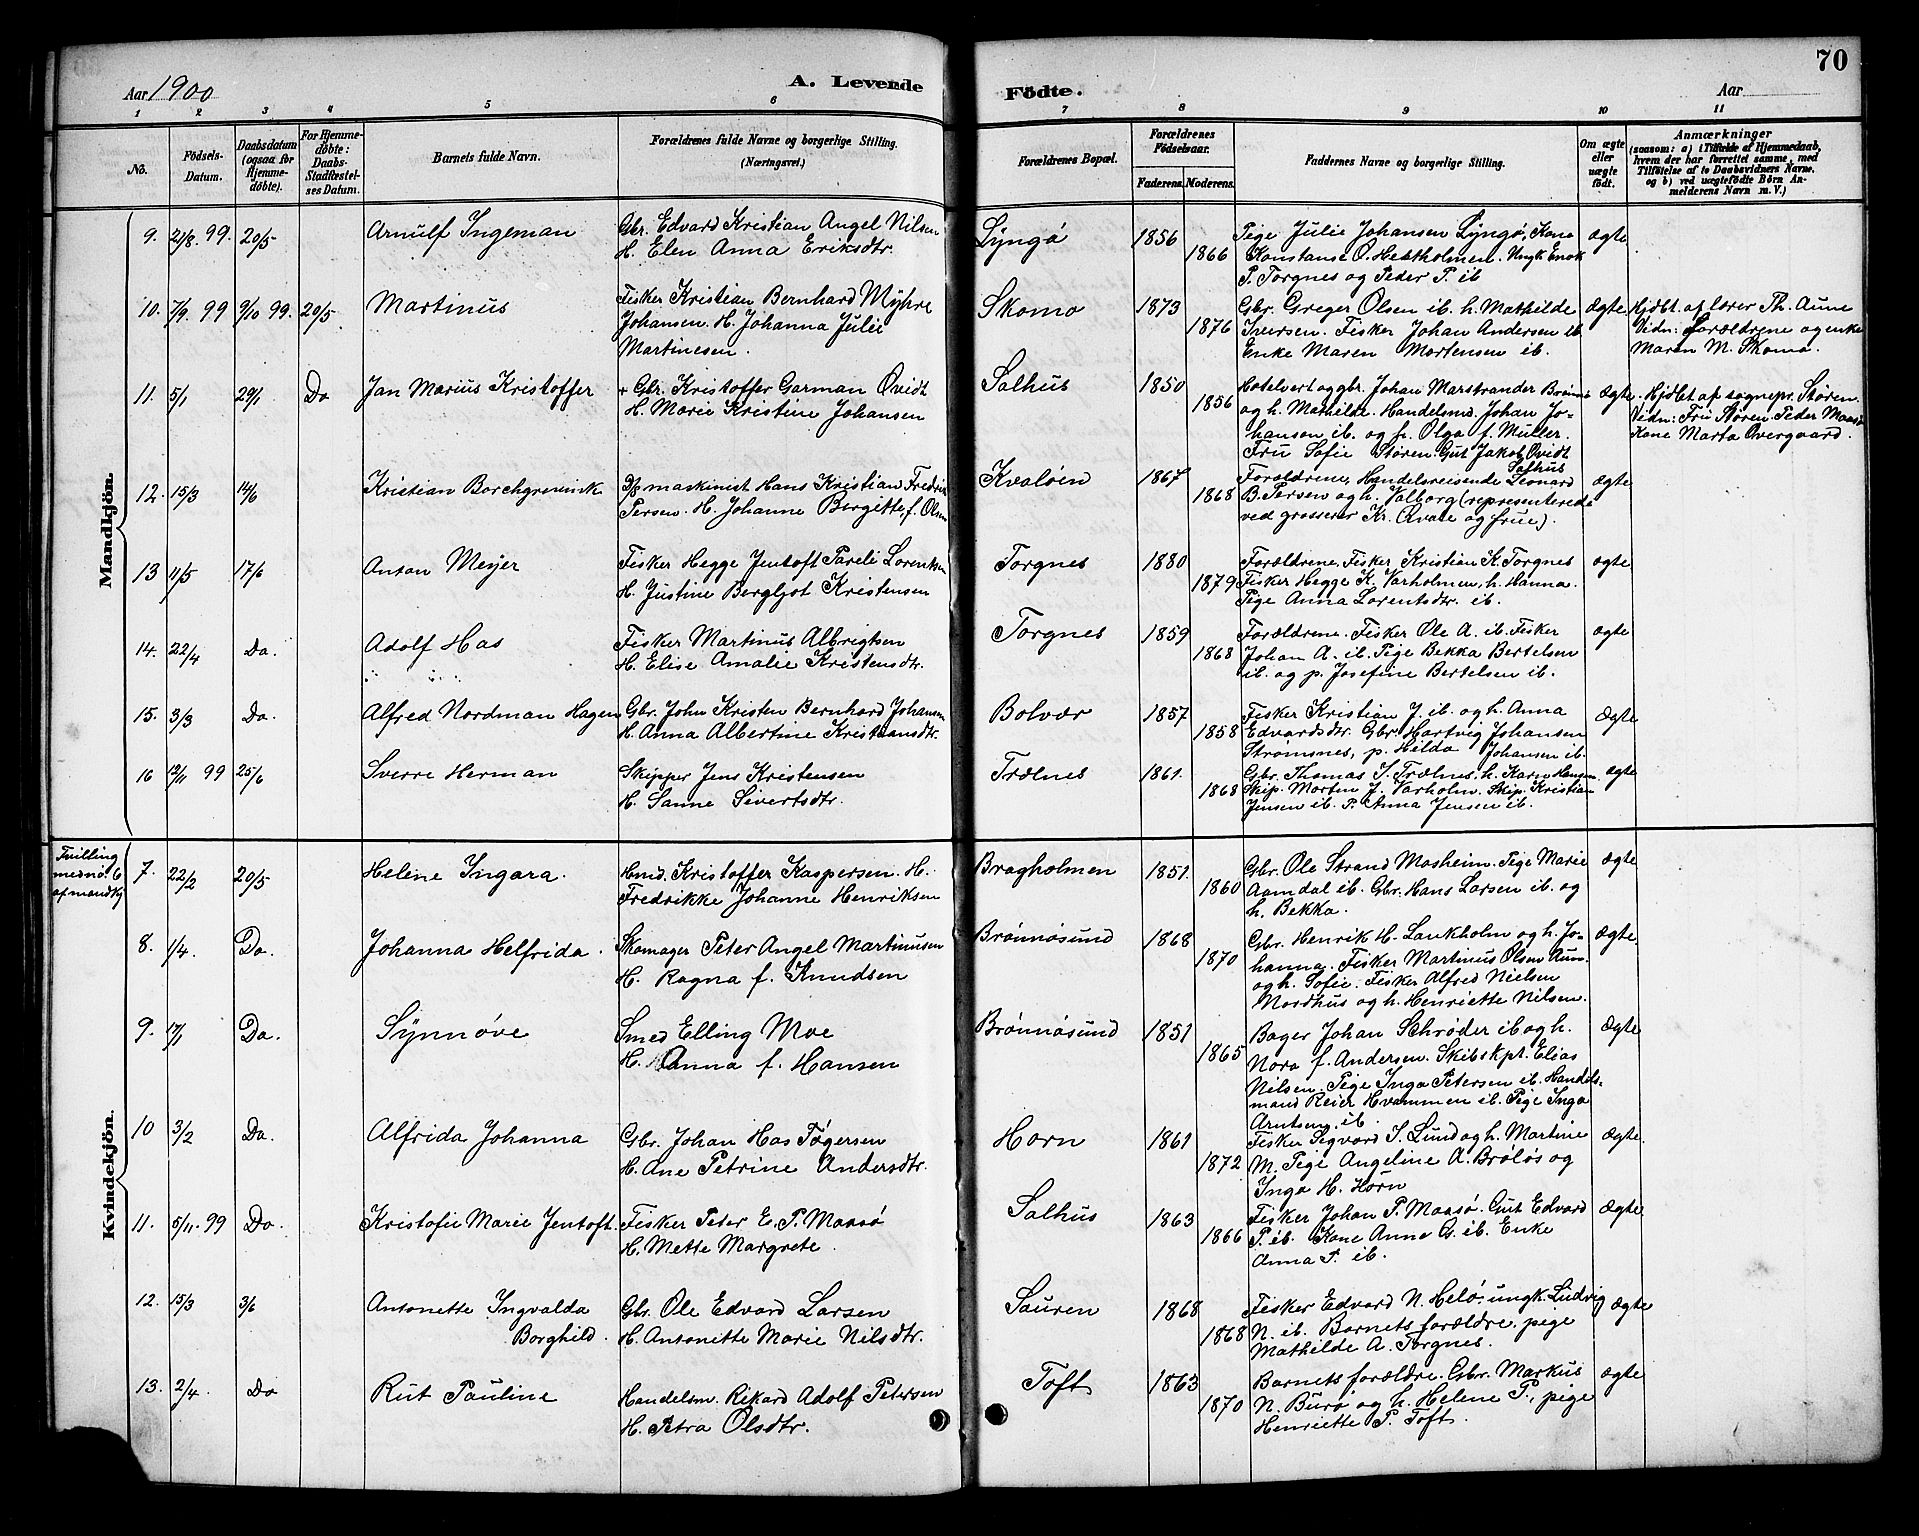 70
Aar 1900
A. Levende
Födte.
Aar
1 2 3 4 5 6 7 8 9 10 11
No.
Födsels-Datum.
Daabsdatum (ogsaa for Hjemme-döbte).
For Hjemme-döbte: Daabs-Stadfæstel-ses Datum.
Barnets fulde Navn.
Forældrenes fulde Navne og borgerlige Stilling. (Næringsvei.)
Forældrenes Bopæl.
Forældrenes Födselsaar.
Faderens. Moderens.
Faddernes Navne og borgerlige Stilling.
Om ægte eller uægte födt.
Anmærkninger
(saasom: a) i Tilfælde af Hjemmedaab, hvem der har forrettet samme, med Tilföielse af to Daabsvidners Navne. og b) ved uægtefödte Börn Anmelderens Navn m. V.)
Mandkjön.
9. 21/8. 99. 20/5 Arnulf Ingeman
Gbr. Edvard Kristian Angel Nilsen
H. Elen Anna Eriksdtr.
Lyngø 1856 1866
Pige Julie Johansen Lyngø, Kone
Konstanse O. Hestholmen. Ungk Enok
P. Torgnes og Peder P. ib
ægte
10. 7/9. 99 9/10 99. 20/5. Martinus
Fisker Kristian Bernhard Myhre
Johansen. H. Johanna Julie
Martinesen.
Skomo 1873 1876
Gbr. Greger Olsen ib. h. Mathilde
Iversen. Fisker Johan Andersen ib.
Enke Maren Mortensen ib.
ægte.
Hjdbt. af lærer Th. Aune
Vidn: Forældrene og enke
Maren M. Skomo.
11. 5/1 29/1 Do Jan Marius Kristoffer
+ Gbr. Kristoffer Garman Qvidt
H. Marie Kristine Johansen
Salhus 1850 1856
Hotelvert og gbr. Johan Marstrander Brønnø
og h. Mathilde. Handelsmd. Johan Jo-
hansen ib. og fr. Olga f. Müller.
Fru Sofie Støren. Gut Jakob Qvidt
Salhus
ægte.
Hjdbt af sognepr. Støren.
Vidn: Fru Støren. Peder Maasø
Kone Marta Overgaard.
12. 15/3 14/6 Kristian Borchgrevink
D/p maskinist Hans Kristian Fredrik
Persen. H. Johanne Borgitte f. Olsen
Kvaløen 1867 1868
Forældrene, Handelsreisende Leonard
B. Persen og h. Valborg (representerede
ved grosserer Kr. Qvale og frue).
ægte
13 11/5 17/6 Anton Meyer
Fisker Hegge Jentoft Pareli Lorentsen
H. Justine Bergljot Kristensen
Torgnes 1880 1879
Forældrene, Fisker Kristian K. Torgnes
Fisker Hegge K. Varholmen, h. Hanna.
Pige Anna Lorentsdtr. ib.
ægte
14. 22/4 Do. Adolf Has
Fisker Martinus Albrigtsen
H. Elise Amalie Kristensdtr.
Torgnes 1859 1868
Forældrene. Fisker Ole A. ib. Fisker
Johan A. ib. Pige Bekka Bertelsen
ib. og p. Josefine Bertelsen ib.
ægte
15. 3/3 Do. Alfred Nordman Hagen
Gbr. John Kristen Bernhard Johansen
H. Anna Albertine Kristiansdtr.
Bolvær 1857 1858
Fisker Kristian J. ib. og h. Anna
Edvardsdtr. Gbr. Hartvig Johansen
Strømsnes, p. Hilda Johansen ib.
Ægte
16 12/11 99 25/6 Sverre Herman
Skipper Jens Kristensen
H. Sanne Sivertsdtr.
Trælnes 1861. 1868
Gbr. Thomas J. Trælnes. h. Karn Hansen.
Skip. Morten J. Varholm. Skip. Kristian
Jensen ib. P. Anna Jensen ib.
ægte
Kvindekjön.
Tvilling
med no. 6
af mandkj
7. 22/2 20/5 Helene Ingara
Hmd. Kristoffer Kaspersen. H.
Fredrikke Johanne Henriksen
Bragholmen 1851. 1860
Gbr. Ole Strand Mosheim. Pige Marie
Aamdal ib. Gbr. Hans Larsen ib. og
h. Bekka.
Ægte
8. 1/4. Do. Johanna Helfrida.
Skomager Peter Angel Martinusen
H. Ragna f. Knudsen
Brønnøsund 1868 1870
Gbr. Henrik H. Laukholm og h. Jo-
hanna. Fisker Martinus Olsen
og h. Sofie. Fisker Alfred Nielsen
Mordhus og h. Henriette Nilsen.
Ægte.
9. 17/1 Do. Synnøve
Smed Elling Moe
H. Anna f. Hansen
Brønnøsund 1851 1865
Bager Johan Schrøder ib og h.
Nora f. Andersen. Skibskpt. Elias
Nilsen. Pige Inga Petersen ib. Handels-
mand Reier Hvammen ib. Pige Inga
Arntsen ib.
Ægte
10 3/2 Do. Alfrida Johanna
Gbr. Johan Has Tøgersen
H. Ane Petrine Andersdtr.
Horn 1861 1872
Fisker Sigvard I. Lund og h. Martine
M. Pige Angeline A. Brøløs og
Inga H. Horn
Ægte.
11. 5/11. 99 Do. Kristofie Marie Jentoft.
Fisker Peter E. P. Maasø
H. Mette Margrete.
Salhus 1863 1866
Fisker Johan P. Maasø. Gut Edvard
P. ib. Kone Anne G. ib. Enke
Anna P. ib.
Ægte
12. 15/3 3/6 Antonette Ingvalda
Borghild.
Gbr. Ole Edvard Larsen
H. Antonette Marie Nilsdtr.
Sauren 1868 1868
Fisker Edvard N. Helø. ungk. Ludvig
N. ib. Barnets forældre, pige
Mathilde A. Torgnes.
Ægte
13. 2/4. Do Rut Pauline
Handelsm. Rikard Adolf Petersen
H. Petra Olsdtr.
Toft 1863 1870
Barnets forældre. Gbr. Markus
N. Burø og h. Helene P., pige
Henriette P. Toft.
ægte